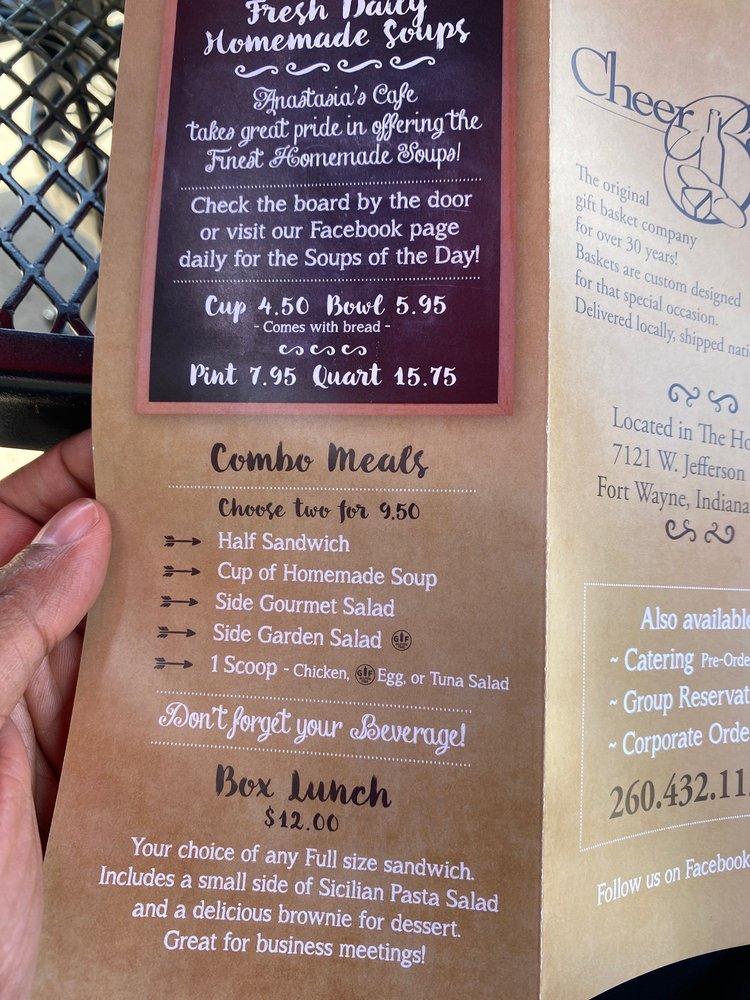 Fresh Daily
Homemade Soups
Anastasia's Cafe
takes great pride in offering the
Finest Homemade Soups!
Check the board by the door
or visit our Facebook page
daily for the Soups of the Day!
Cup 4.50 Bowl 5.95
- Comes with bread -
Pint 7.95 Quart 15.75
Combo Meals
Choose two for 9.50
Half Sandwich
Cup of Homemade Soup
Side Gourmet Salad
Side Garden Salad GF
1 Scoop - Chicken, GF Egg, or Tuna Salad
Don't forget your Beverage!
Box Lunch
$12.00
Your choice of any Full size sandwich.
Includes a small side of Sicilian Pasta Salad
and a delicious brownie for dessert.
Great for business meetings!
Cheer
The original
gift basket company
for over 30 years!
Baskets are custom designed
for that special occasion.
Delivered locally, shipped nati
Located in The Ho
7121 W. Jefferson
Fort Wayne, Indiana
Also available
~ Catering Pre-Orde
~ Group Reservat
~ Corporate Orde
260.432.11
Follow us on Facebook